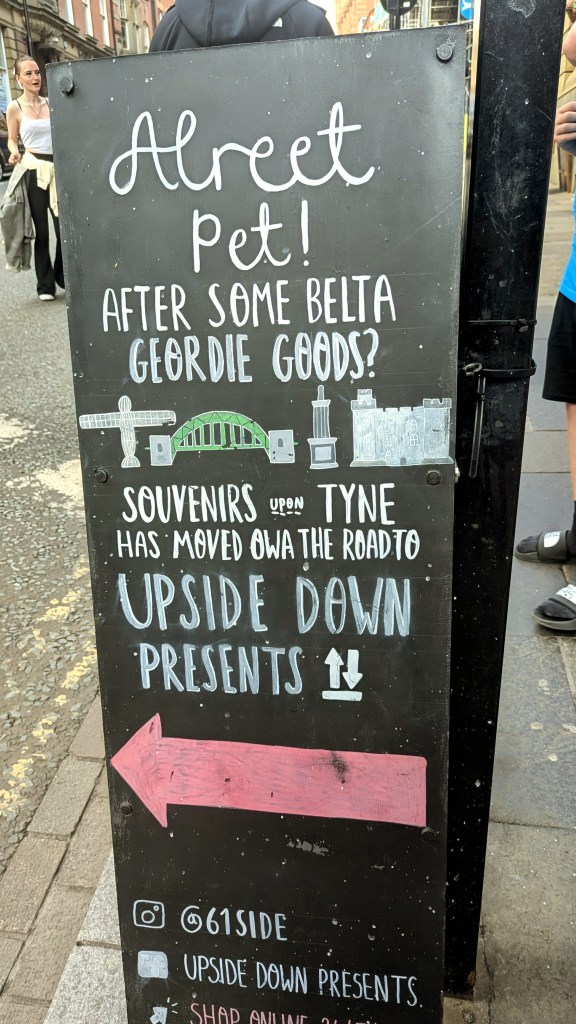 Alreet
Pet!
AFTER SOME BELTA
GEORDIE GOODS?
SOUVENIRS UPON TYNE
HAS MOVED OWA THE ROAD TO
UPSIDE DOWN
PRESENTS
@61SIDE
UPSIDE DOWN PRESENTS.
SHOP ONLINE